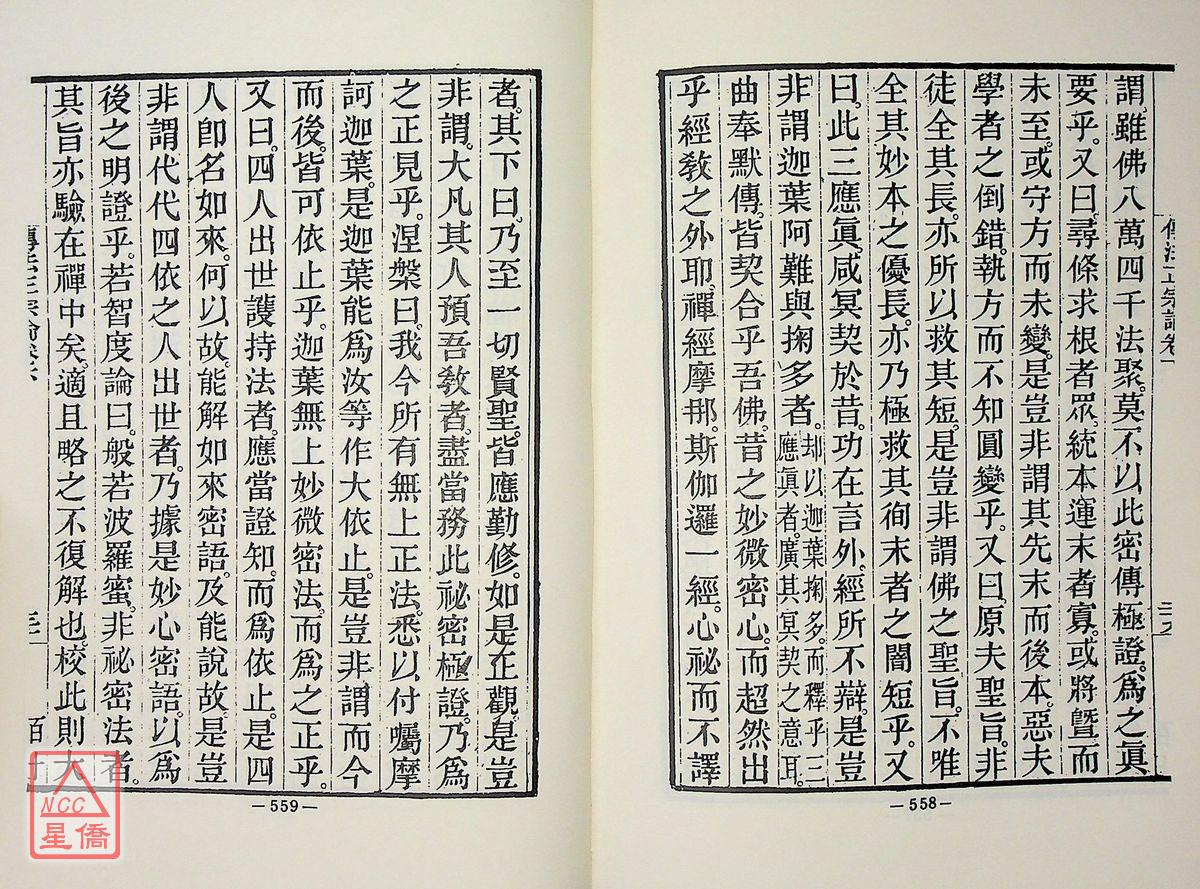 謂。雖佛八萬四千法聚。莫不以此密傳極證。爲之眞
要乎。又曰。尋條求根者眾。統本運末者寡。或將曁而
未至。或守方而未變。是豈非謂其先末而後本。惡夫
學者之倒錯。執方而不知圓變乎。又曰。原夫聖旨。非
徒全其長。亦所以救其短。是豈非謂佛之聖旨。不唯
全其妙本之優長。亦乃極救其徇末者之闇短乎。又
曰。此三應眞。咸冥契於昔。功在言外。經所不辯。是豈
非謂迦葉阿難與掬多者。却以迦葉掬多。而釋乎三應眞者。廣其冥契之意耳。
曲奉默傳。皆契合乎吾佛。昔之妙微密心。而超然出
乎經敎之外耶。禪經摩那。斯伽邏一經。心祕而不譯
—558—
者。其下曰。乃至一切賢聖。皆應勤修。如是正觀。是豈
非謂。大凡其人預吾敎者。盡當務此祕密極證。乃爲
之正見乎。涅槃曰。我今所有無上正法。悉以付囑摩
訶迦葉。是迦葉能爲汝等作大依止。是豈非謂而今
而後。皆可依止乎。迦葉無上妙微密法。而爲之正乎。
又曰。四人出世護持法者。應當證知。而爲依止。是四
人卽名如來。何以故。能解如來密語。及能說故。是豈
非謂代代四依之人出世者。乃據是妙心密語。以爲
後之明證乎。若智度論曰。般若波羅蜜。非祕密法者。
其旨亦驗在禪中矣。適且略之不復解也。校此則大
—559—
NCC
星僑